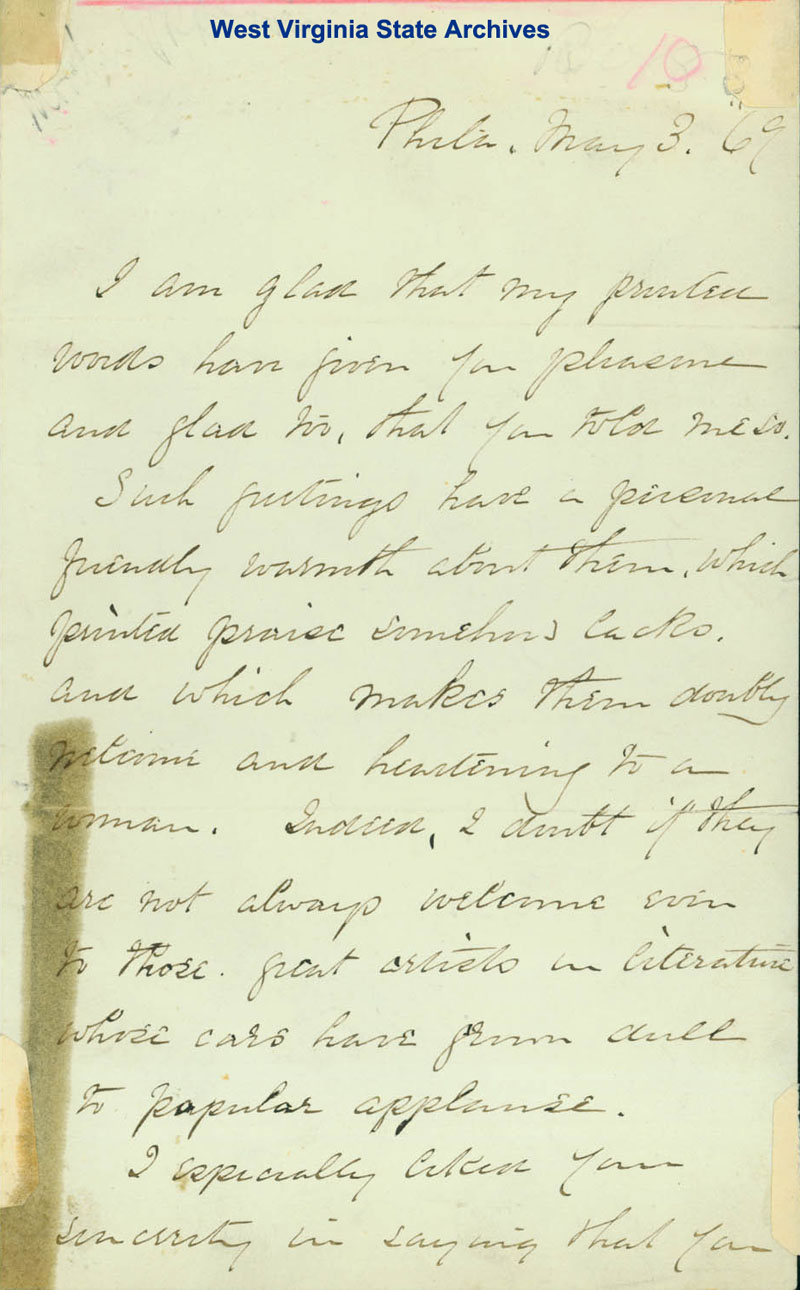 West Virginia State Archives
10
Phila. May 3. 69
I am glad that my printed
words have given you pleasure
and glad too, that you told me so.
Such greetings have a personal
friendly warmth about them, which
printed praise somehow lacks.
and which makes them doubly
welcome and heartening to a
woman. Indeed, I doubt if they
are not always welcome even
to those great artists in literature
whose ears have grown dull
to popular applause.
I especially liked your
sincerity in saying that you